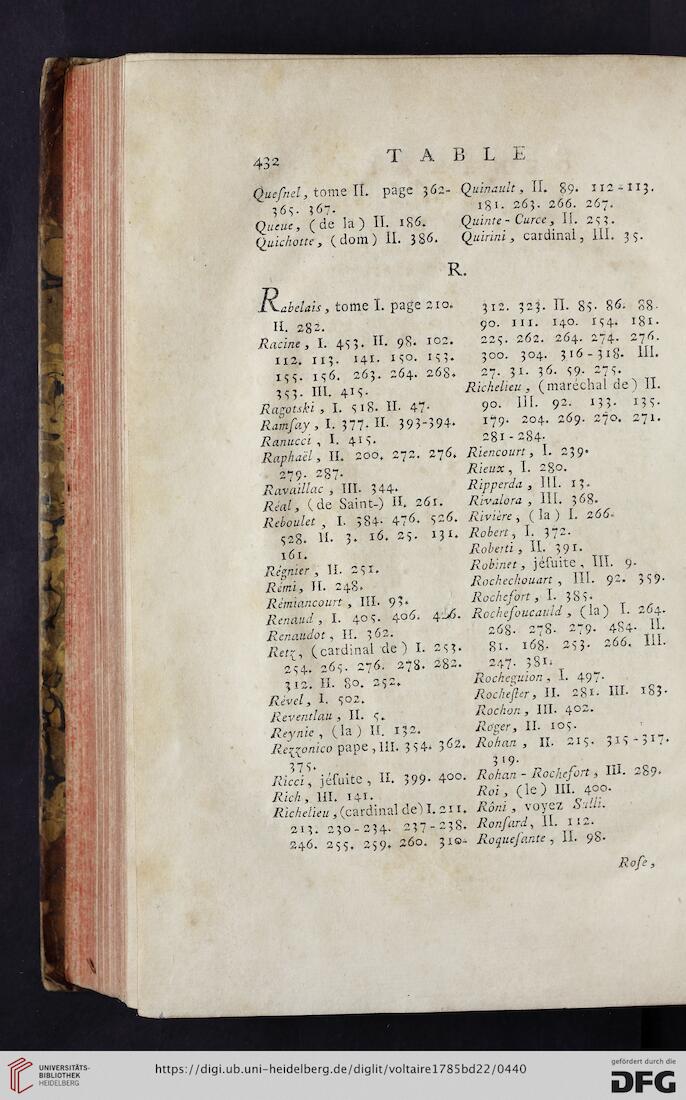 432
T A B L E
Queſnel, tome II. page 362-
365. 367.
Queue, (de la) II. 186.
Quichotte, (dom) II. 386.
Quinault, II. 89. 112-113.
181. 263. 266. 267.
Quinte-Curce, II. 253.
Quirini, cardinal, III. 35.
R.
Rabelais, tome I. page 210.
II. 282.
Racine, I. 453. II. 98. 102.
112. 113. 141. 150. 153.
155. 156. 263. 264. 268.
353. III. 415.
Ragotski, I. 518. II. 47.
Ramſay, I. 377. II. 393-394.
Ranucci, I. 415.
Raphaël, II. 200. 272. 276.
279. 287.
Ravaillac, III. 344.
Réal, (de Saint-) II. 261.
Reboulet, I. 384. 476. 526.
528. II. 3. 16. 25. 131.
161.
Régnier, II. 251.
Rémi, II. 248.
Rémiancourt, III. 93.
Renaud, I. 405. 406.
Renaudot, II. 362.
Retz, (cardinal de) I. 253.
254. 265. 276. 278. 282.
312. II. 80. 252.
Rével, I. 502.
Reventlau, II. 5.
Reynie, (la) II. 132.
Rezzonico pape, III. 354. 362.
375.
Ricci, jéſuite, II. 399. 400.
Rich, III. 141.
Richelieu, (cardinal de) I. 211.
213. 230-234. 237-238.
246. 255. 259. 260. 310-
312. 323. II. 85. 86. 88.
90. 111. 140. 154. 181.
225. 262. 264. 274. 276.
300. 304. 316-318. III.
27. 31. 36. 59. 275.
Richelieu, (maréchal de) II.
90. III. 92. 133. 135.
179. 204. 269. 270. 271.
281-284.
Riencourt, I. 239.
Rieux, I. 280.
Ripperda, III. 13.
Rivalora, III. 368.
Rivière, (la) I. 266.
Robert, I. 372.
Roberti, II. 391.
Robinet, jéſuite, III. 9.
Rochechouart, III. 92. 359.
Rochefort, I. 385.
Rochefoucauld, (la) I. 264.
268. 278. 279. 484. II.
81. 168. 253. 266. III.
247. 381.
Rocheguion, I. 497.
Rocheſter, II. 281. III. 183.
Rochon, III. 402.
Roger, II. 105.
Rohan, II. 215. 315-317.
319.
Rohan-Rochefort, III. 289.
Roi, (le) III. 400.
Rôni, voyez Sulli.
Ronſard, II. 112.
Roqueſante, II. 98.
Roſe,
UNIVERSITÄTS-
BIBLIOTHEK
HEIDELBERG
https://digi.ub.uni-heidelberg.de/diglit/voltaire1785bd22/0440
gefördert durch die
DFG